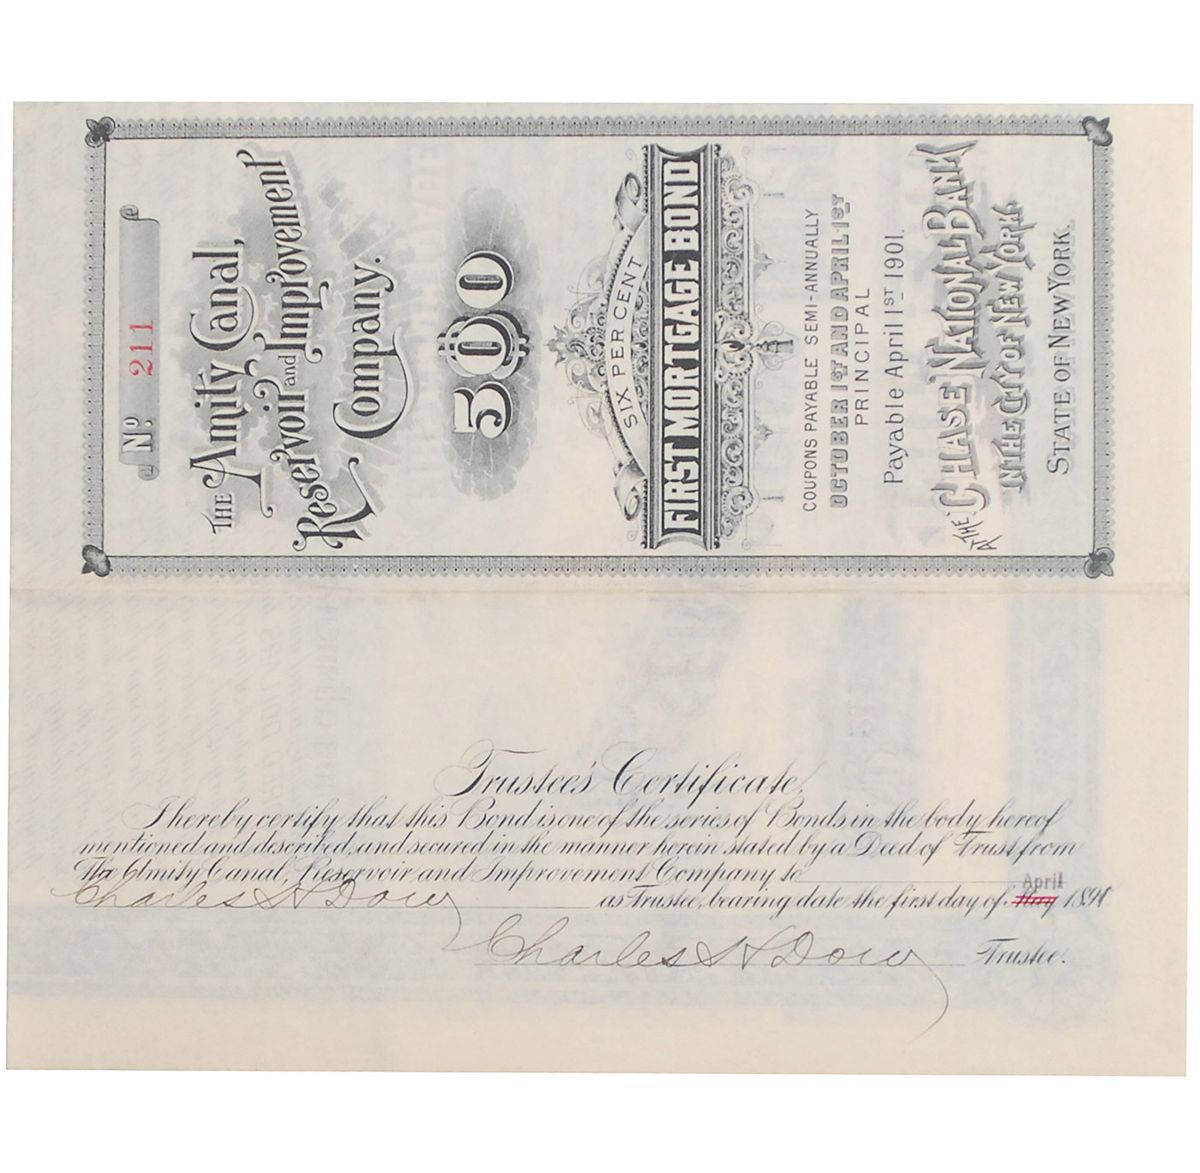 No. 211
THE Amity Canal,
Reservoir and Improvement
Company.
$500
SIX PER CENT
FIRST MORTGAGE BOND
COUPONS PAYABLE SEMI-ANNUALLY
OCTOBER 1ST AND APRIL 1ST
PRINCIPAL
Payable April 1ST 1901.
AT THE CHASE NATIONAL BANK
IN THE CITY OF NEW YORK,
STATE OF NEW YORK.
Trustee's Certificate.
I hereby certify that this Bond is one of the series of Bonds in the body hereof
mentioned and described, and secured in the manner herein stated by a Deed of Trust from
The Amity Canal, Reservoir and Improvement Company to
April
Charles H Dow as Trustee, bearing date the first day of May 1891.
Charles H Dow Trustee.